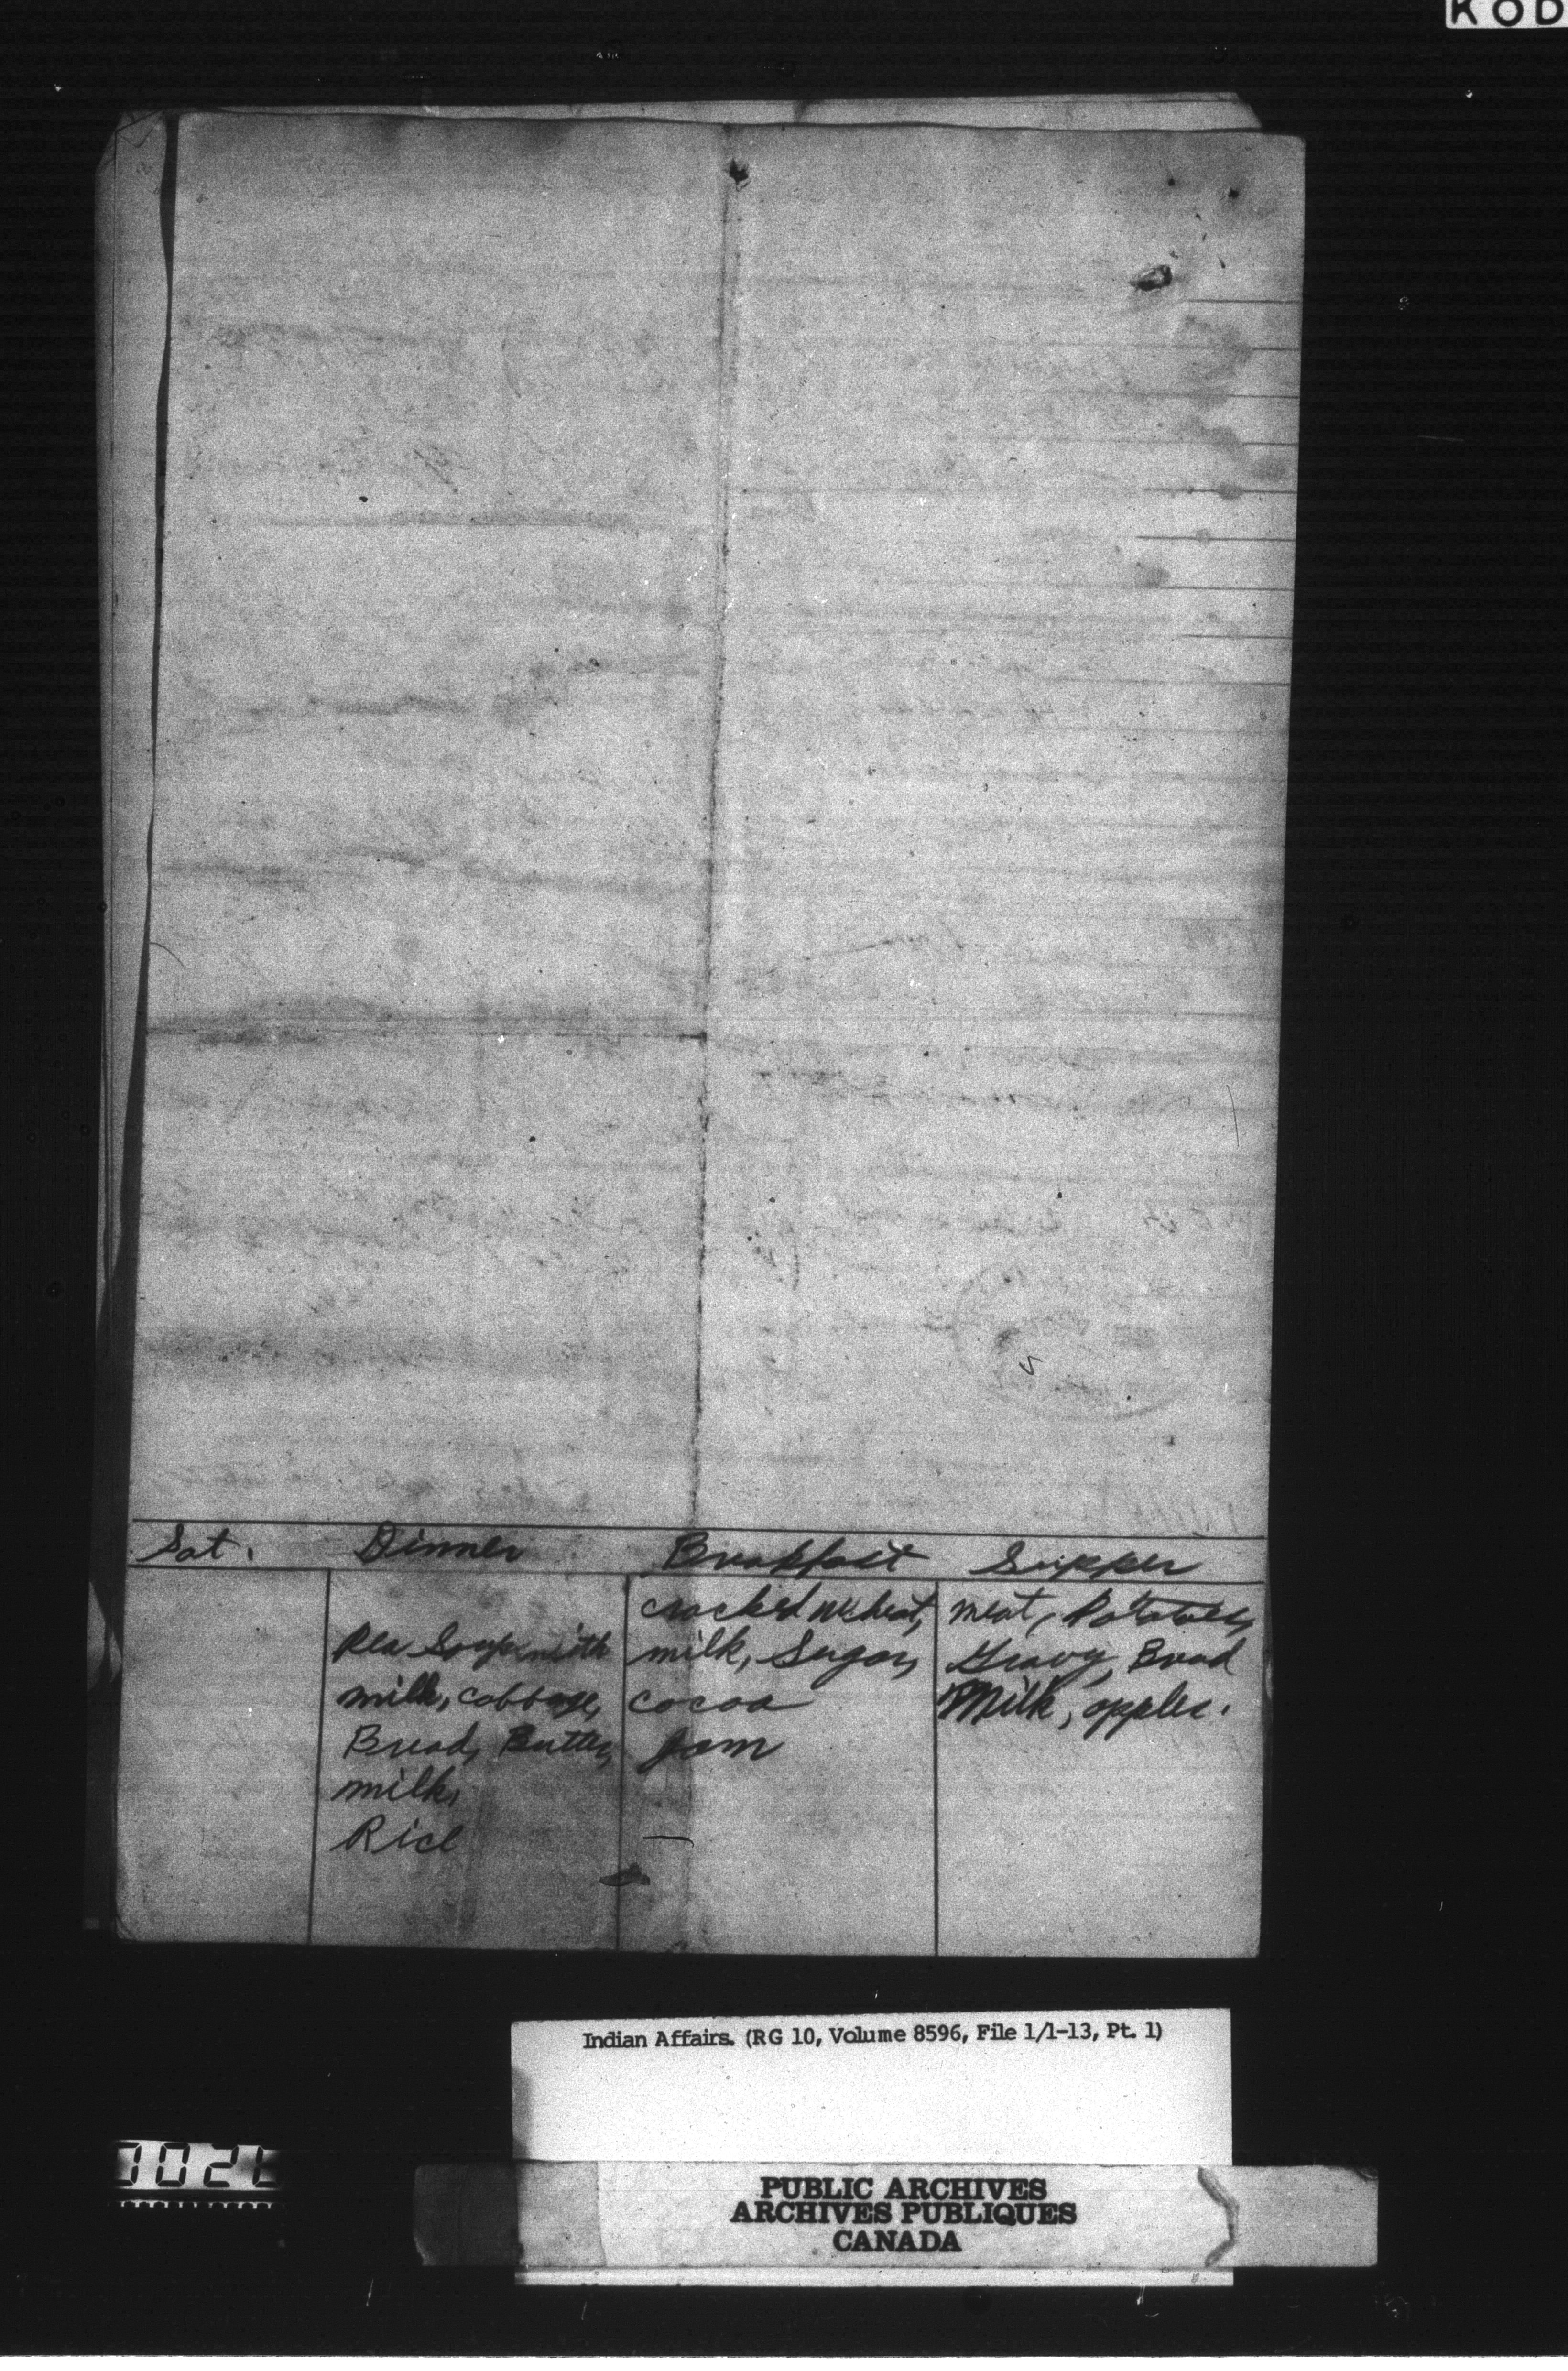 KOD
Sat. Dinner Breakfast Supper
Pea Soup with
milk, cabbage,
Bread, Butter,
milk,
Rice
cracked wheat,
milk, Sugar,
cocoa
Jam
meat, Potatoes,
Gravy, Bread
Milk, apples.
Indian Affairs. (RG 10, Volume 8596, File 1/1-13, Pt. 1)
PUBLIC ARCHIVES
ARCHIVES PUBLIQUES
CANADA